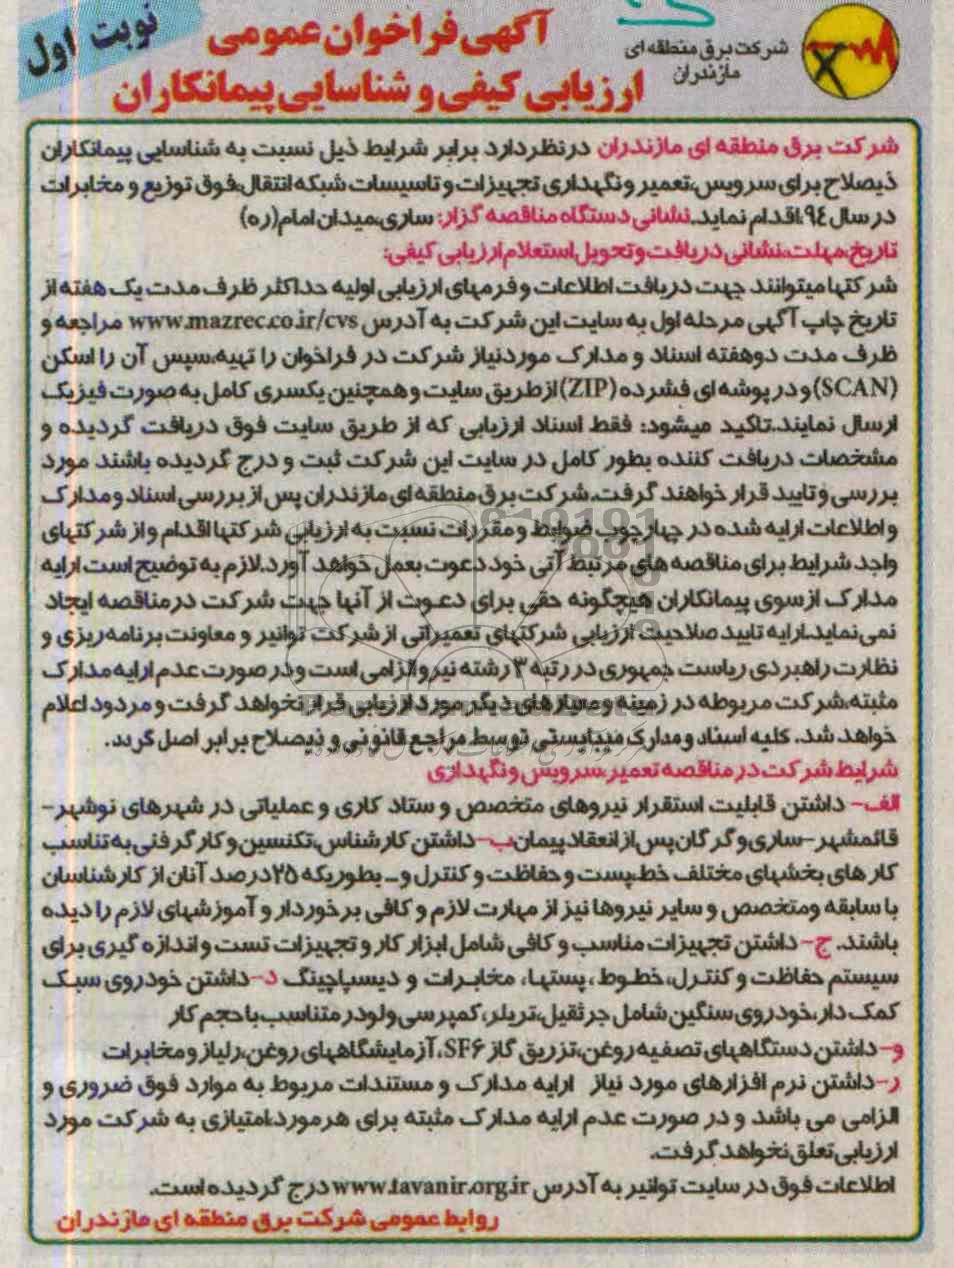 نوبت اول
شرکت برق منطقه ای
مازندران
آگهی فراخوان عمومی
ارزیابی کیفی و شناسایی پیمانکاران
شرکت برق منطقه ای مازندران درنظردارد برابر شرایط ذیل نسبت به شناسایی پیمانکاران
ذیصلاح برای سرویس،تعمیر و نگهداری تجهیزات و تاسیسات شبکه انتقال،فوق توزیع و مخابرات
در سال ۹٤،اقدام نماید.نشانی دستگاه مناقصه گزار: ساری،میدان امام(ره)
تاریخ،مهلت،نشانی دریافت و تحویل استعلام ارزیابی کیفی:
شرکتها میتوانند جهت دریافت اطلاعات و فرمهای ارزیابی اولیه حداکثر ظرف مدت یک هفته از
تاریخ چاپ آگهی مرحله اول به سایت این شرکت به آدرس www.mazrec.co.ir/cvs مراجعه و
ظرف مدت دوهفته اسناد و مدارک موردنیاز شرکت در فراخوان را تهیه،سپس آن را اسکن
(SCAN) و در پوشه ای فشرده (ZIP) ازطریق سایت و همچنین یکسری کامل به صورت فیزیک
ارسال نمایند.تاکید میشود: فقط اسناد ارزیابی که از طریق سایت فوق دریافت گردیده و
مشخصات دریافت کننده بطور کامل در سایت این شرکت ثبت و درج گردیده باشند مورد
بررسی و تایید قرار خواهند گرفت.شرکت برق منطقه ای مازندران پس از بررسی اسناد و مدارک
و اطلاعات ارایه شده در چهارچوب ضوابط و مقررات نسبت به ارزیابی شرکتها اقدام و از شرکتهای
واجد شرایط برای مناقصه های مرتبط آتی خود دعوت بعمل خواهد آورد.لازم به توضیح است ارایه
مدارک ازسوی پیمانکاران هیچگونه حقی برای دعوت از آنها جهت شرکت درمناقصه ایجاد
نمی نماید.ارایه تایید صلاحیت ارزیابی شرکتهای تعمیراتی از شرکت توانیر و معاونت برنامه ریزی و
نظارت راهبردی ریاست جمهوری در رتبه ۳ رشته نیرو الزامی است و در صورت عدم ارایه مدارک
مثبته،شرکت مربوطه در زمینه و معیارهای دیگر مورد ارزیابی قرار نخواهد گرفت و مردود اعلام
خواهد شد. کلیه اسناد و مدارک میبایستی توسط مراجع قانونی و ذیصلاح برابر اصل گردد.
شرایط شرکت در مناقصه تعمیر،سرویس و نگهداری
الف- داشتن قابلیت استقرار نیروهای متخصص و ستاد کاری و عملیاتی در شهرهای نوشهر-
قائمشهر-ساری و گرگان پس از انعقاد پیمان ب- داشتن کارشناس،تکنسین و کارگر فنی به تناسب
کارهای بخشهای مختلف خط،پست و حفاظت و کنترل و ... بطوریکه ۲۵ درصد آنان از کارشناسان
با سابقه ومتخصص و سایر نیروها نیز از مهارت لازم و کافی برخوردار و آموزشهای لازم را دیده
باشند. ج- داشتن تجهیزات مناسب و کافی شامل ابزار کار و تجهیزات تست و اندازه گیری برای
سیستم حفاظت و کنترل، خطوط، پستها، مخابرات و دیسپاچینگ د-داشتن خودروی سبک
کمک دار،خودروی سنگین شامل جرثقیل،تریلر،کمپرسی ولودر متناسب با حجم کار
و- داشتن دستگاههای تصفیه روغن،تزریق گاز SF۶، آزمایشگاههای روغن،رلیاژ و مخابرات
ر-داشتن نرم افزارهای مورد نیاز ارایه مدارک و مستندات مربوط به موارد فوق ضروری و
الزامی می باشد و در صورت عدم ارایه مدارک مثبته برای هرمورد،امتیازی به شرکت مورد
ارزیابی تعلق نخواهد گرفت.
اطلاعات فوق در سایت توانیر به آدرس www.tavanir.org.ir درج گردیده است.
روابط عمومی شرکت برق منطقه ای مازندران